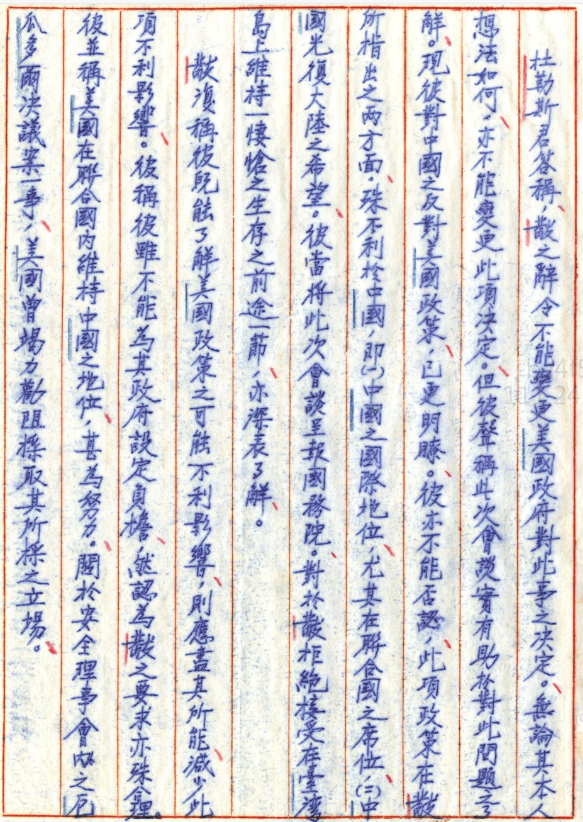 杜勒斯君答稱，敝之辭令不能變更美國政府對此事之決定。無論其本人
想法如何。亦不能變更此項決定。但彼聲稱此次會談實有助於對此問題之了
解。現彼對中國之反對美國政策，已更明瞭。彼亦不能否認，此項政策在敝
所指出之兩方面。殊不利於中國，即(一)中國之國際地位，尤其在聯合國之席位，(二)中
國光復大陸之希望。彼當將此次會談呈報國務院。對於敝拒絕接受在臺灣
島上維持一悽愴之生存之前途一節，亦深表了解。
敝復稱彼既能了解美國政策之可能不利影響，則應盡其所能減少此
項不利影響。彼稱彼雖不能為其政府設定負擔，然認為敝之要求亦殊合理。
彼並稱美國在聯合國內維持中國之地位，甚為努力。關於安全理事會內之厄
瓜多爾決議案一事，美國曾竭力勸阻採取其所採之立場。